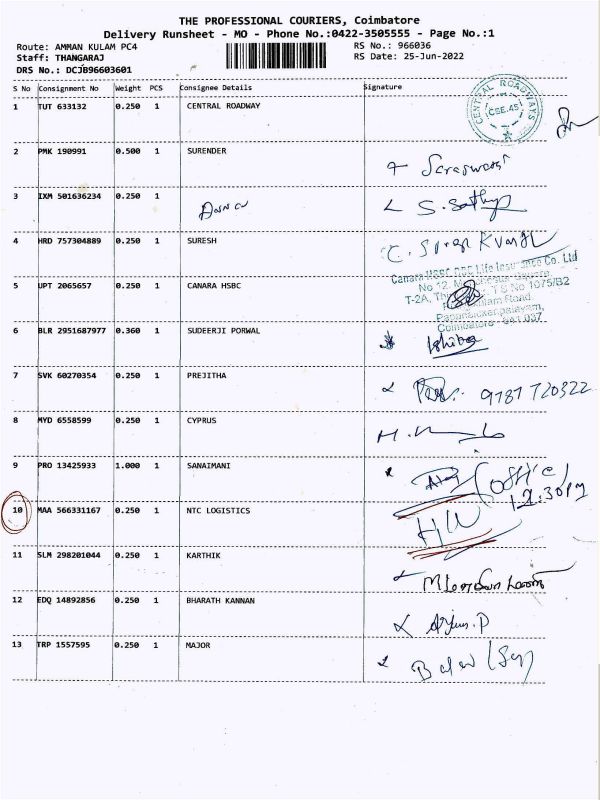 THE PROFESSIONAL COURIERS, Coimbatore
Delivery Runsheet - MO - Phone No.:0422-3505555 - Page No.:1
Route: AMMAN KULAM PC4 RS No.: 966036
Staff: THANGARAJ RS Date: 25-Jun-2022
DRS No.: DCJB96603601
S No Consignment No Weight PCS Consignee Details Signature
1 TUT 633132 0.250 1 CENTRAL ROADWAY
CENTRAL ROADWAYS
CBE.45
2 PMK 190991 0.500 1 SURENDER
Saraswathi
3 IXM 501636234 0.250 1
S. Sathya
4 HRD 757304889 0.250 1 SURESH
C. Suresh Kumar
5 UPT 2065657 0.250 1 CANARA HSBC
Canara HSBC OBC Life Insurance Co. Ltd
No 12,
T-2A, T S No 1075/B2
Road
Pappanaickenpalayam,
Coimbatore - 641 037
6 BLR 2951687977 0.360 1 SUDEERJI PORWAL
7 SVK 60270354 0.250 1 PREJITHA
9787720322
8 MYD 6558599 0.250 1 CYPRUS
9 PRO 13425933 1.000 1 SANAIMANI
(office)
12.30pm
10 MAA 566331167 0.250 1 NTC LOGISTICS
H/W
11 SLM 298201044 0.250 1 KARTHIK
12 EDQ 14892856 0.250 1 BHARATH KANNAN
Arjun.P
13 TRP 1557595 0.250 1 MAJOR